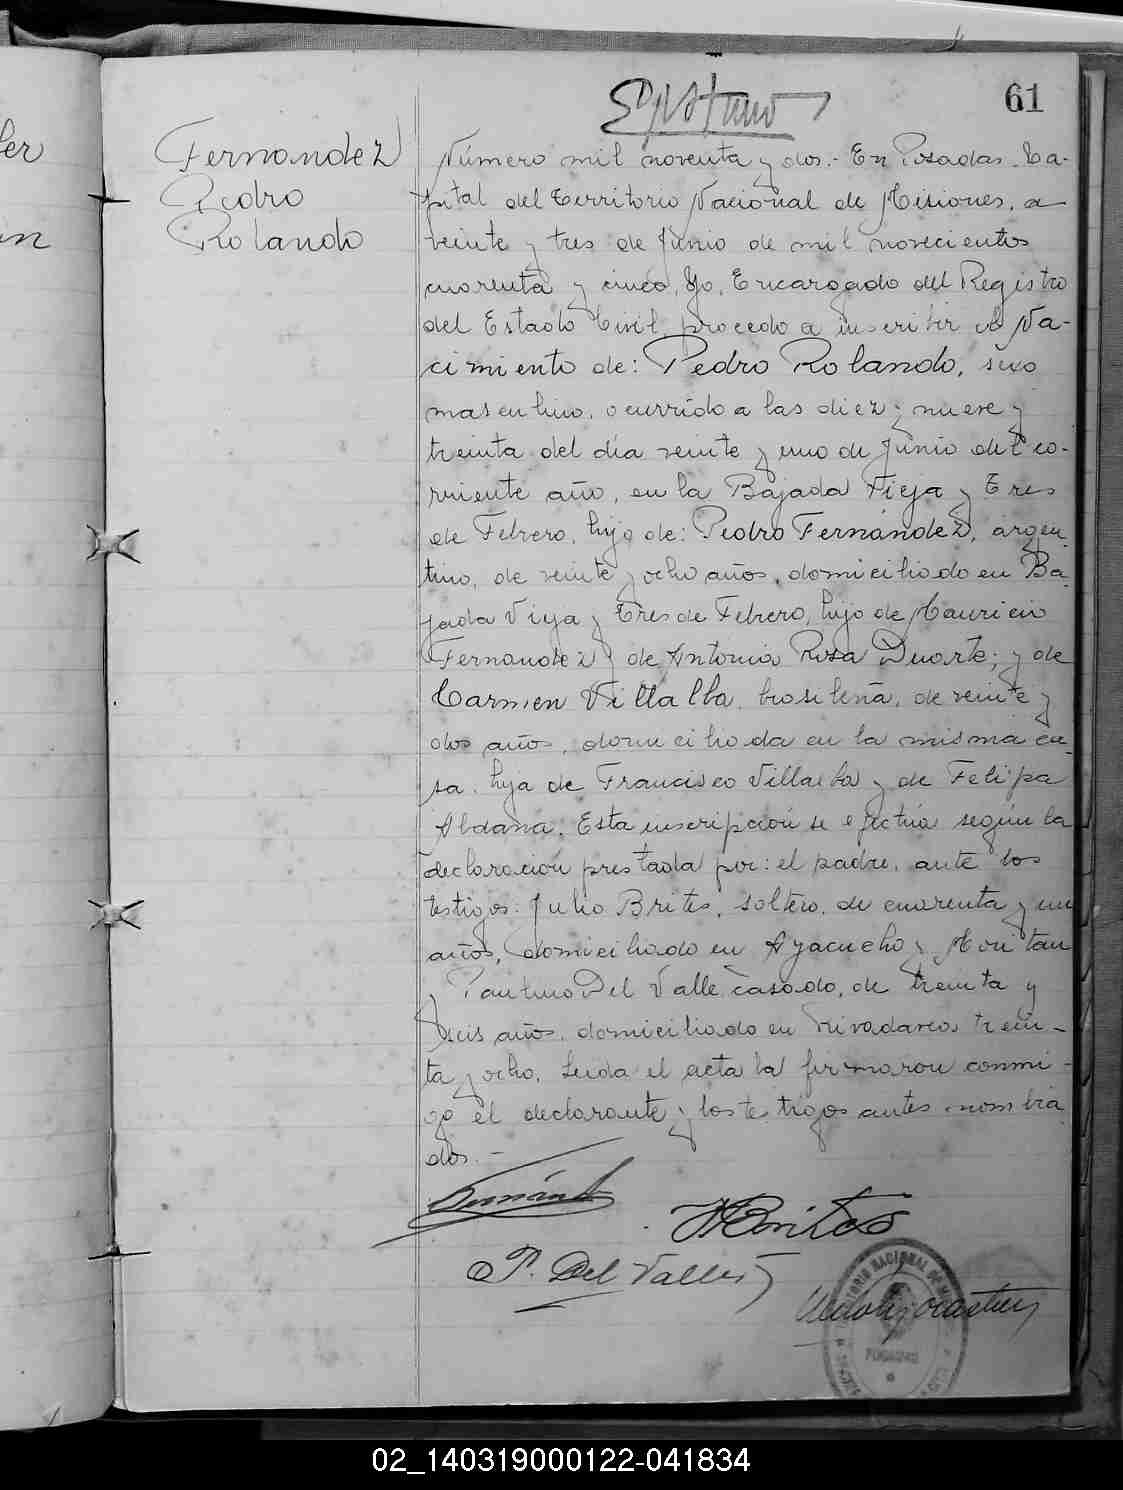 61
Fernandez
Pedro
Rolando
Número mil noventa y dos.- En Posadas, Ca-
pital del Territorio Nacional de Misiones, a
veinte y tres de Junio de mil novecientos
cuarenta y cinco, Yo, Encargado del Registro
del Estado Civil, procedo a inscribir el Na-
cimiento de: Pedro Rolando, sexo
masculino, ocurrido a las diez y nueve y
treinta del día veinte y uno de Junio del co-
rriente año, en la Bajada Vieja y Tres
de Febrero, hijo de: Pedro Fernández, argen-
tino, de veinte y ocho años, domiciliado en Ba-
jada Vieja y Tres de Febrero, hijo de Mauricio
Fernandez y de Antonia Rosa Duarte; y de
Carmen Villalba, brasileña, de veinte y
dos años, domiciliada en la misma ca-
sa, hija de Francisco Villalba y de Felipa
Aldana. Esta inscripción se efectúa según la
declaración prestada por: el padre, ante los
testigos: Julio Brites, soltero, de cuarenta y un
años, domiciliado en Ayacucho y
y Paulino Del Valle, casado, de treinta y
seis años, domiciliado en Rivadavia trein-
ta y ocho. Leida el acta la firmaron conmi-
go el declarante y los testigos antes nombra
dos.-
Brites
P. Del Valle
TERRITORIO NACIONAL DE MISIONES
POSADAS
02_140319000122-041834